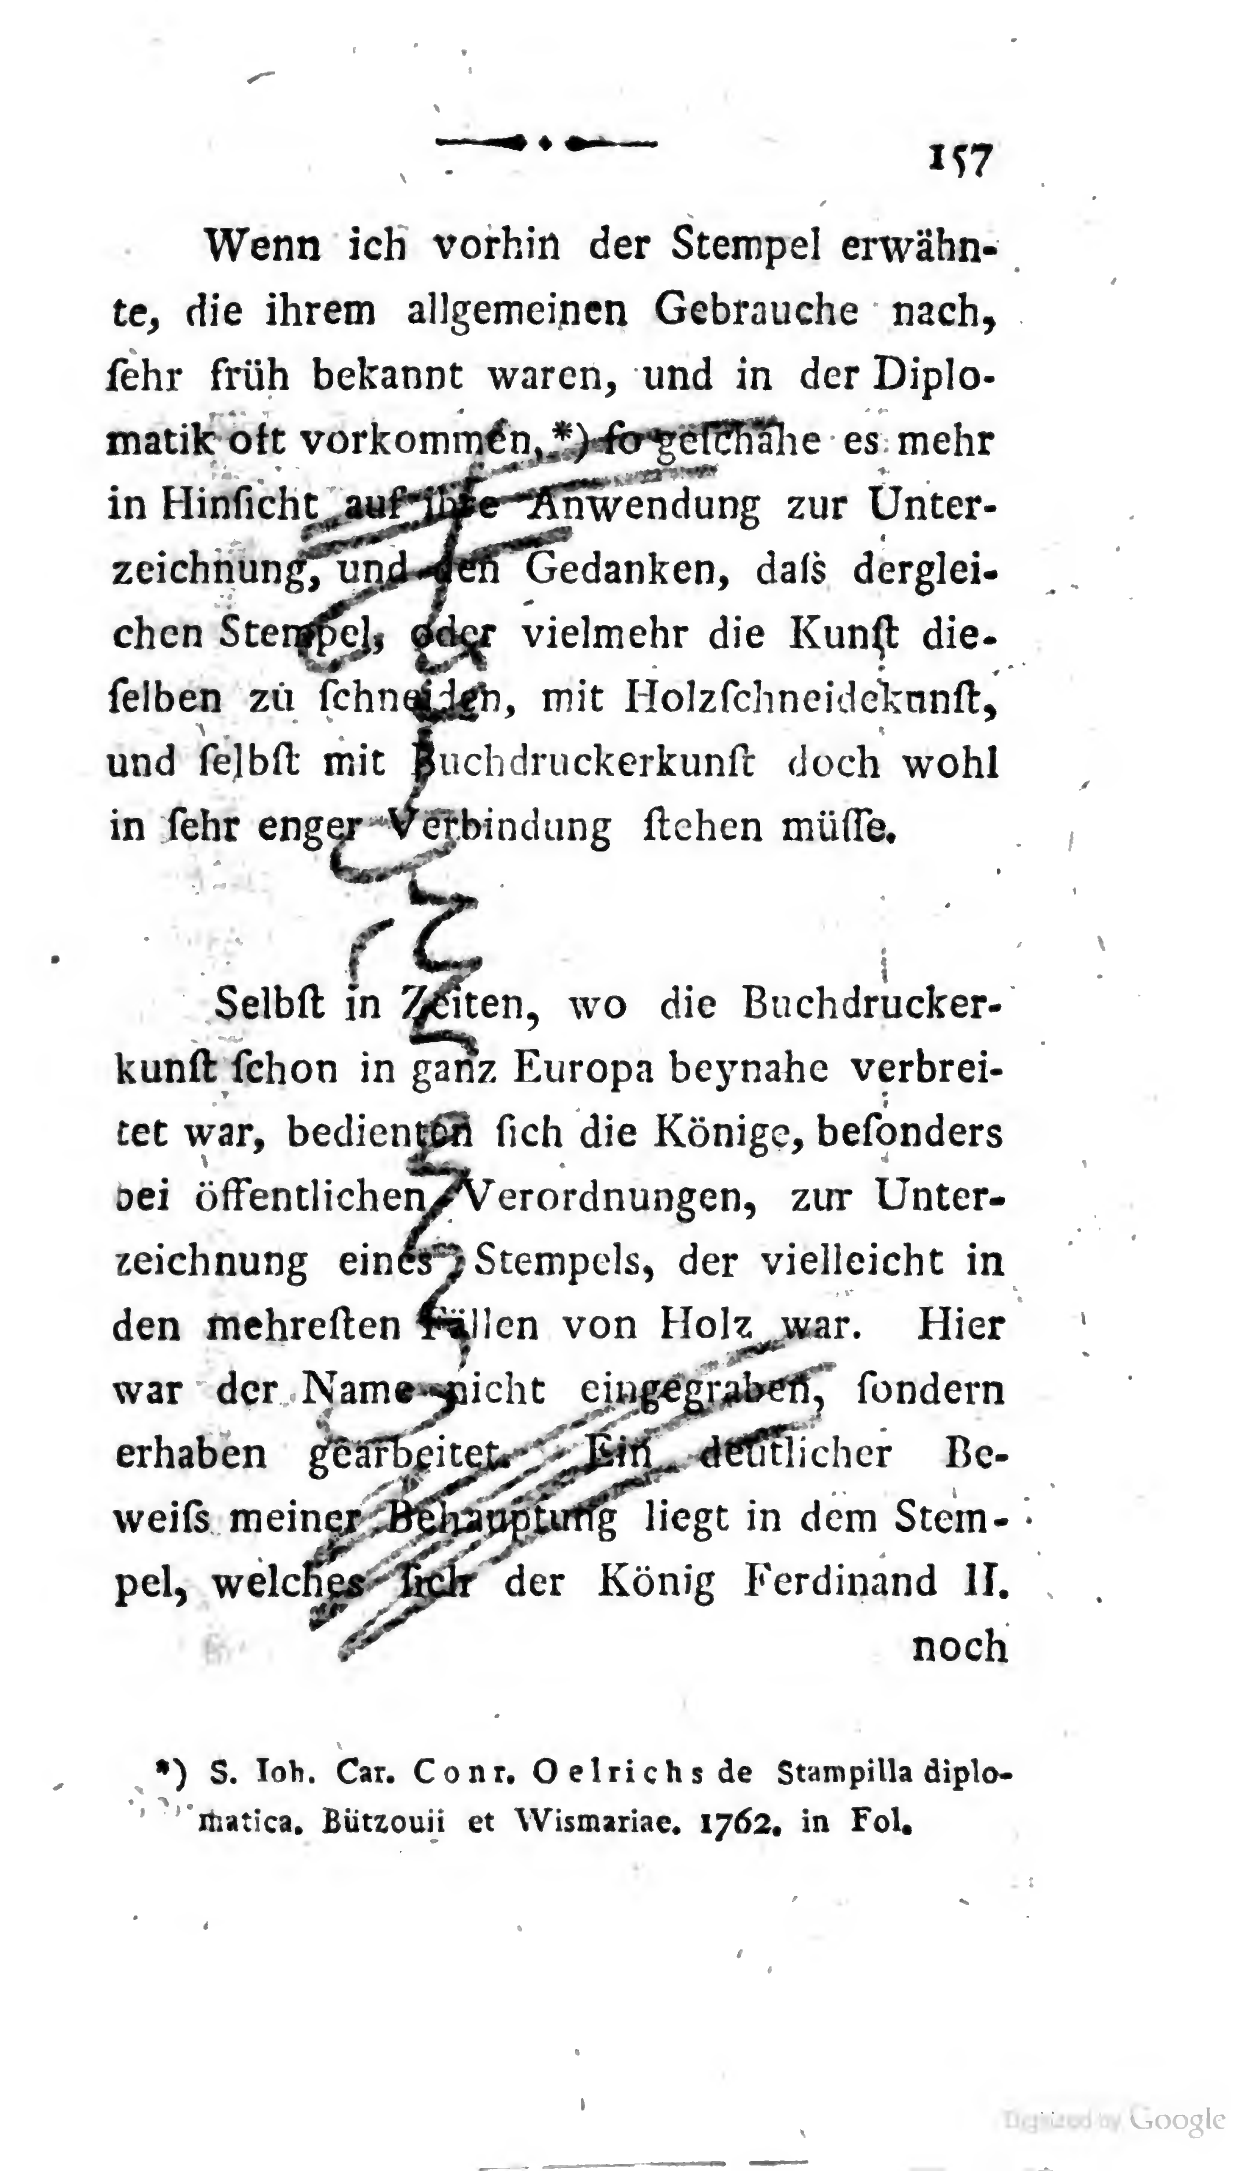 157
Wenn ich vorhin der Stempel erwähn-
te, die ihrem allgemeinen Gebrauche nach,
ſehr früh bekannt waren, und in der Diplo-
matik oft vorkommen,*) ſo geſchahe es mehr
in Hinſicht auf ihre Anwendung zur Unter-
zeichnung, und den Gedanken, daſs derglei-
chen Stempel, oder vielmehr die Kunſt die-
ſelben zu ſchneiden, mit Holzſchneidekunſt,
und ſelbſt mit Buchdruckerkunſt doch wohl
in ſehr enger Verbindung ſtehen müſſe.
Selbſt in Zeiten, wo die Buchdrucker-
kunſt ſchon in ganz Europa beynahe verbrei-
tet war, bedienten ſich die Könige, beſonders
bei öffentlichen Verordnungen, zur Unter-
zeichnung eines Stempels, der vielleicht in
den mehreſten Fällen von Holz war. Hier
war der Name nicht eingegraben, ſondern
erhaben gearbeitet. Ein deutlicher Be-
weiſs meiner Behauptung liegt in dem Stem-
pel, welches ſich der König Ferdinand II.
noch
*) S. Ioh. Car. Conr. Oelrichs de Stampilla diplo-
matica. Bützouii et Wismariae. 1762. in Fol.
Digitized by Google